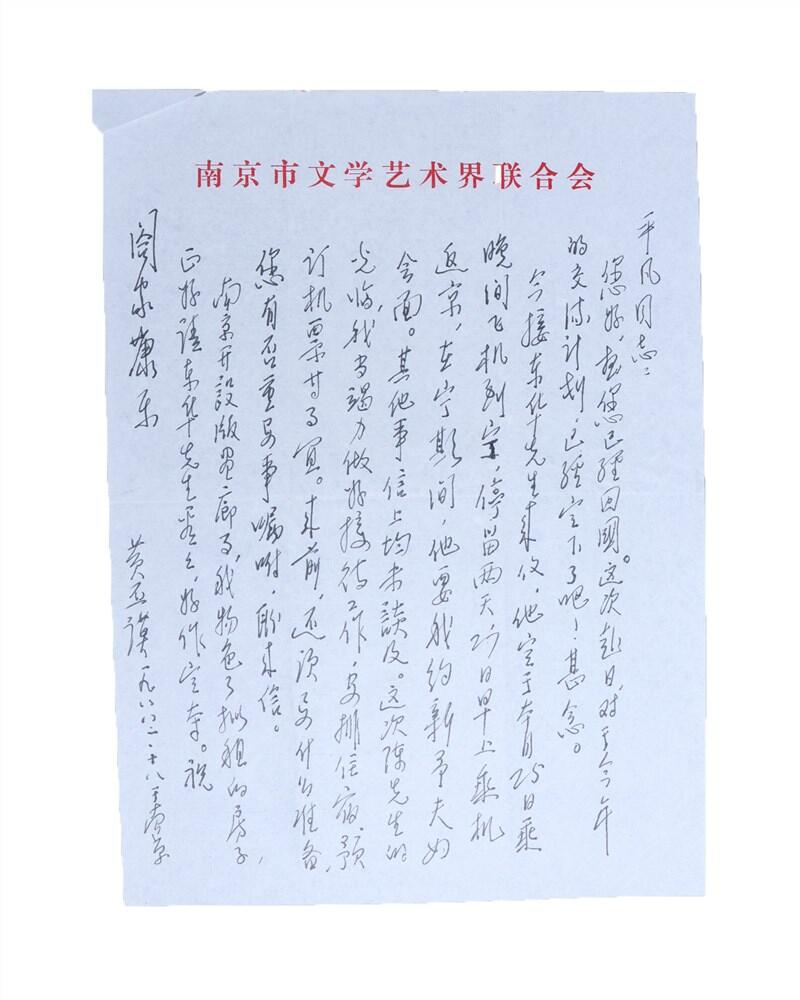 南京市文学艺术界联合会
平凡同志：
您好，想您已经回国。这次赴日，对于今年
的交流计划，已经定下了吧！甚念。
今接东华先生来信，他定于本月25日乘
晚间飞机到宁，停留两天，27日早上乘机
返京，在宁期间，他要我约新予夫妇
会面。其他事信上均未谈及。这次陈先生的
光临，我当竭力做好接待工作，安排住宿、预
订机票等事宜。来前，还须要什么准备，
您有否重要事嘱咐，盼来信。
南京开设版画廊事，我物色了拟租的房子，
正好请东华先生看看，好作定夺。祝
阖家康乐
黄丕谟 一九八八 二·十八 于南京